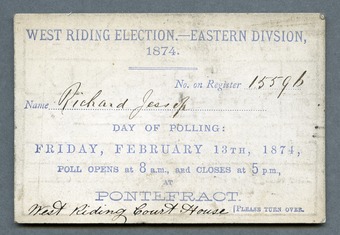 WEST RIDING ELECTION.—EASTERN DIVSION,
1874.
No. on Register 15596
Name Richard Jessop
DAY OF POLLING:
FRIDAY, FEBRUARY 13TH, 1874,
POLL OPENS at 8 a.m., and CLOSES at 5 p.m.,
AT
PONTEFRACT.
West Riding Court House [PLEASE TURN OVER.